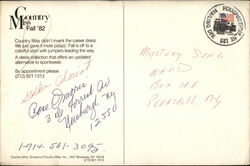 Country
Miss
Fall '82
Country Miss didn't invent the career dress
We just gave it more pizazz. Fall is off to a
colorful start with jumpers leading the way.
A dress collection that offers an updated
alternative to sportswear.
By appointment please
(212) 921-1313
Golden Chariot
Rose
3
Newburgh, NY
12550
1-914-561-3095
Mystery Song
WHUD
Box 188
Peekskill, NY
Country Miss, Division of Country Miss, Inc., 1407 Broadway, NY 10018